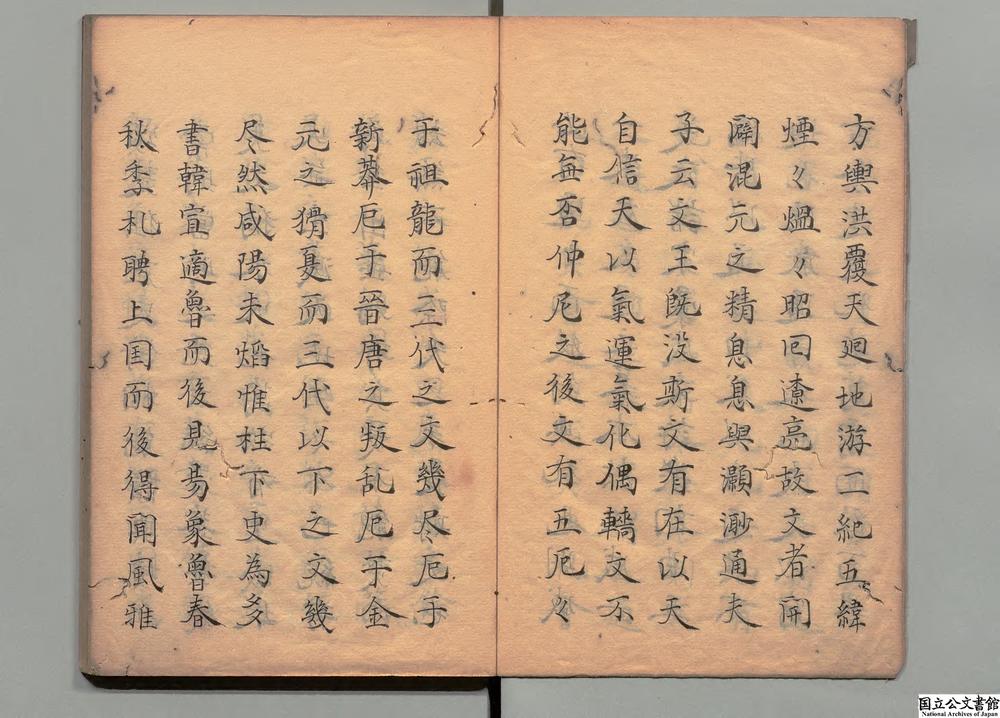 方輿洪覆天廻地游二紀五緯
煙々熅々昭囘遼亮故文者開
闢混元之精息息與灝渺通夫
子云文王既没斯文有在以天
自信天以氣運氣化偶轖文不
能無否仲尼之後文有五厄々
于祖龍而三代之文幾尽厄于
新莽厄于晉唐之叛乱厄于金
元之猾夏而三代以下之文幾
尽然咸陽未熖惟柱下史為多
書韓宣適魯而後見易象魯春
秋季札聘上国而後得聞風雅
国立公文書館
National Archives of Japan